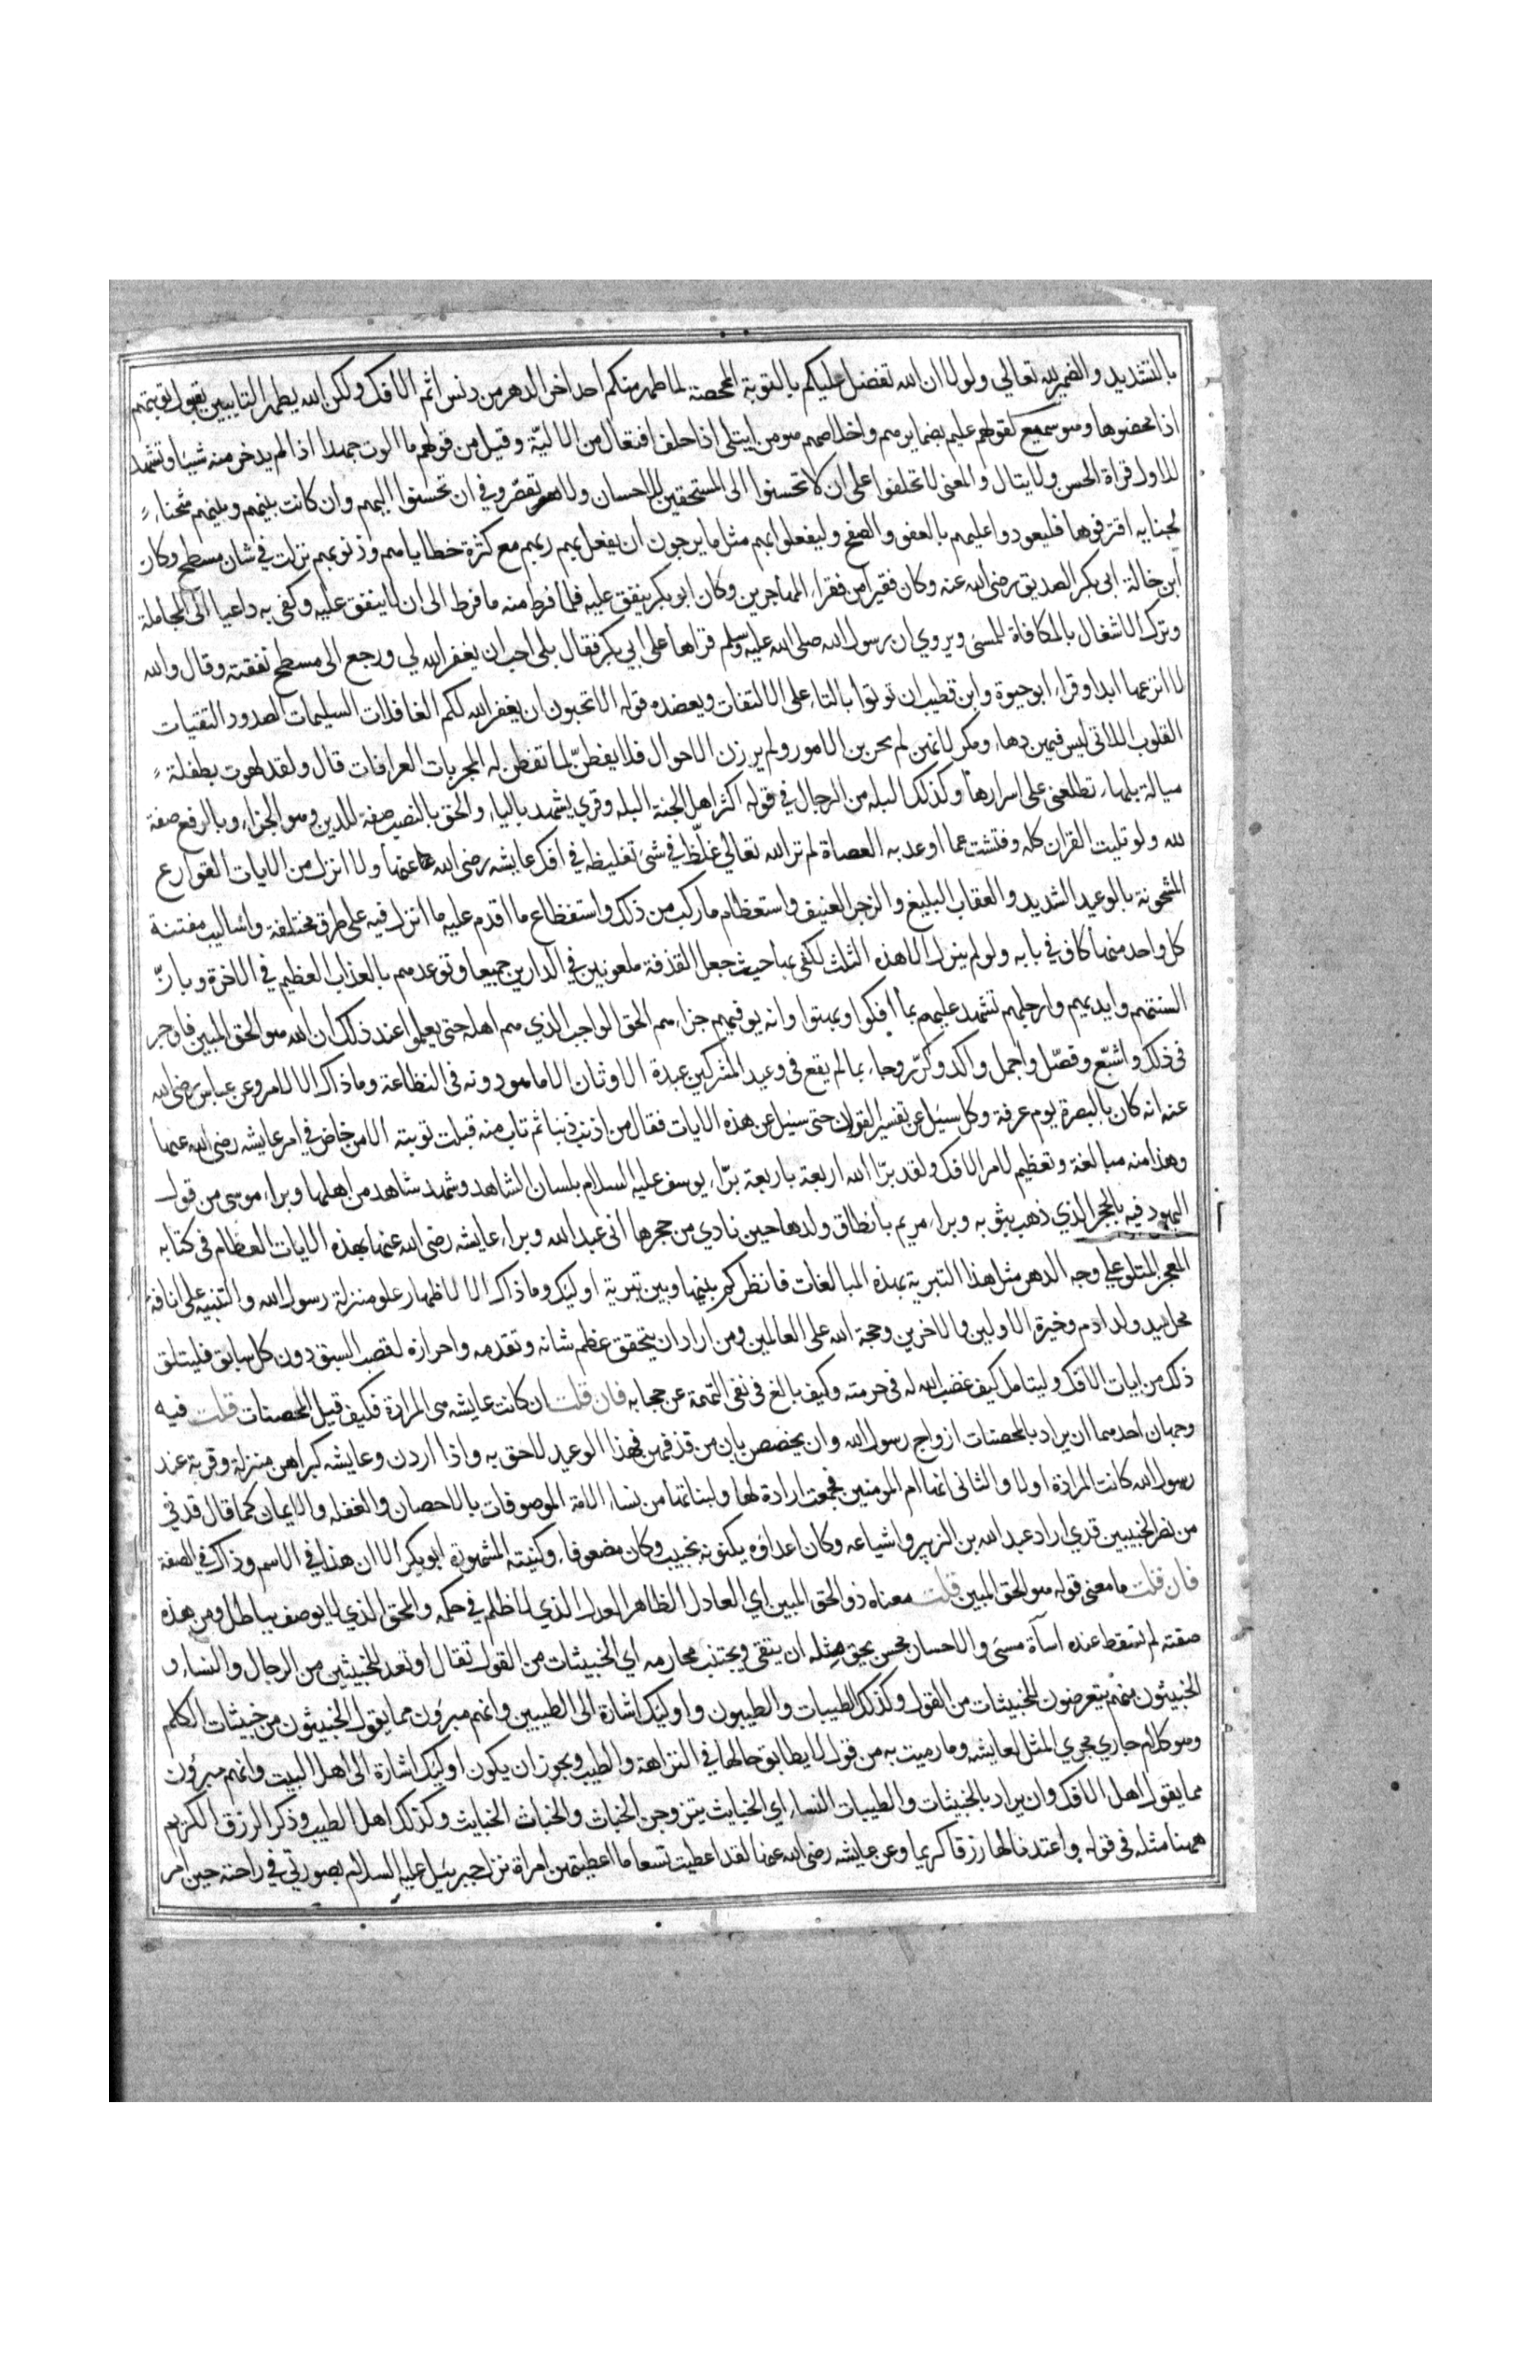 بالتشديد والضمير لله تعالي ولولا ان الله تفضل عليكم بالتوبة الممحصة لما طهر منكم احد اخر الدهر من دنس اثم الافك ولكن الله يطهر التايبين بقبول توبتهم
اذا محضوها وهو سميع لقولهم عليم بضمايرهم واخلاصهم هو من ايتلى اذا حلف افتعال من الالية وقيل من قولهم ما الوت جهدا اذا لم يدخر منه شيا وتشهد
للاول قراة الحسن ولا يتال والمعنى لا تحلفوا على ان لا تحسنوا الى المستحقين للاحسان ولا تقصروا في ان تحسنوا اليهم وان كانت بينهم وبينهم شحناء
لجنايه اقترفوها فليعودوا عليهم بالعفو والصفح وليفعلوا بهم مثل ما يرجون ان يفعل بهم ربهم مع كثرة خطاياهم وذنوبهم نزلت في شان مسطح وكان
ابن خالة ابى بكر الصديق رضى الله عنه وكان فقيرا من فقراء المهاجرين وكان ابو بكر ينفق عليه فلما فرط منه ما فرط الى ان لا ينفق عليه وكفى به داعيا الى المجاملة
وترك الاشغال بالمكافاة للمسئ ويروي ان رسول الله صلى الله عليه وسلم قراها على ابي بكر فقال بلى احب ان يغفر الله لي ورجع الى مسطح نفقته وقال والله
لا انزعها ابدا وقراء ابو حيوة وابن قطيب ان توتوا بالتاء على الالتفات ويعضده قوله الا تحبون ان يغفر الله لكم الغافلات السليمات الصدور التقيات
القلوب اللاتى ليس فيهن دهاء ومكر لانهن لم يجربن الامور ولم يرزن الاحوال فلا يفطنّ لما تفطن له المجربات العرافات قال ولقد لهوت بطفلة
ميالة بلهاء تطلعني على اسرارها وكذلك البله من الرجال في قوله اكثر اهل الجنة البله وقري يشهد بالياء والحق بالنصب صفة للدين وهو الجزاء وبالرفع صفة
لله ولو تليت القران كله وفتشت عما اوعد به العصاة لم تر الله تعالي غلّظ في شئ تغليظه في افك عايشه رضى الله عنها ولا انزل من الايات القوارع
المشحونة بالوعيد الشديد والعقاب البليغ والزجر العنيف واستعظام ما ركب من ذلك واستفظاع ما اقدم عليه ما انزل فيه على طرق مختلفة واساليب مفتنة
كل واحد منها كاف في بابه ولو لم ينزل الا هذه الثلث لكفى بها حيث جعل القذفة ملعونين في الدارين جميعا وتوعدهم بالعذاب العظيم في الاخرة وبانّ
السنتهم وايديهم وارجلهم تشهد عليهم بما افكوا وبهتوا وانه يوفيهم جزاءهم الحق الواجب الذي هم اهله حتى يعلموا عند ذلك ان الله هو الحق المبين فاوجز
فى ذلك واشبع وفصّل واجمل واكد وكرّر وجاء بما لم يقع فى وعيد المشركين عبدة الاوثان الا ما هو دونه فى الفظاعة وما ذاك الا لامر وعن عباس رضى الله
عنه انه كان بالبصرة يوم عرفة وكل سئيل عن تفسير القران حتى سئيل عن هذه الايات فقال من اذنب ذنبا ثم تاب منه قبلت توبته الا من خاض في امر عايشه رضى الله عنها
وهذا منه مبالغة وتعظيم لامر الافك ولقد برّا الله اربعة باربعة برّاء يوسف عليه السلام بلسان الشاهد وشهد شاهد من اهلها وبراء موسى من قول
اليهود فيه بالحجر الذي ذهب بثوبه وبراء مريم بانطاق ولدها حين نادي من حجرها انى عبد الله وبراء عايشه رضى الله عنها بهذه الايات العظام فى كتابه
المعجز المتلو علي وجه الدهر مثل هذا التبرية بهذه المبالغات فانظر كم بينها وبين تبرية اوليك وما ذاك الا لاظهار علو منزلة رسول الله والتنبيه على انافة
محل سيد ولد ادم وخيرة الاولين والاخرين وحجة الله على العالمين ومن اراد ان يتحقق عظم شانه وتقدمه واحرازه لقصب السبق دون كل سابق فليتلق
ذلك من ايات الافك وليتامل كيف غضب الله له فى حرمته وكيف بالغ فى نفى التهمة عن حجابه فان قلت ان كانت عايشه هى المرادة فكيف قيل المحصنات قلت فيه
وجهان احدهما ان يراد بالمحصنات ازواج رسول الله وان يخصص بان من قذفهن فهذا الوعيد لاحق به واذا اردن وعايشه كبراهن منزلة وقربة عند
رسول الله كانت المرادة اولا والثانى انها ام المومنين فجمعت ارادة لها ولبناتها من نساء الامة الموصوفات بالاحصان والغفله والايمان كما قال قدني
من نصر الخبيبين قدي اراد عبد الله بن الزبير واشياعه وكان اعداؤه يكنونه بخبيب وكان مضعوفا، وكنيته المشهورة ابو بكر الا ان هذا في الاسم وذاك في الصفة
فان قلت ما معنى قوله هو الحق المبين قلت معناه ذو الحق المبين اي العادل الظاهر العدل الذي لا ظلم في حكمه والمحق الذي لا يوصف بباطل ومن هذه
صفته لم تسقط عنده اساة مسئ والاحسان محسن يحق مثله ان يتقى ويجتنب محارمه اي الخبيثات من القول تقال او تعد للخبيثين من الرجال والنساء و
الخبيثون منهم يتعرضون للخبيثات من القول وكذلك الطيبات والطيبون واوليك اشارة الى الطيبين وانهم مبرؤن مما يقول الخبيثون من خبيثات الكلم
وهو كلام جاري مجري المثل لعايشه وما رميت به من قول لا يطابق حالها في النزاهة والطيب ويجوز ان يكون اوليك اشارة الى اهل البيت وانهم مبرؤن
مما يقول اهل الافك وان يراد بالخبيثات والطيبات النساء اي الخبايث يتزوجن الخباث والخباث الخبايث وكذلك اهل الطيب وذكر الرزق الكريم
ههنا مثله فى قوله واعتدنا لها رزقا كريما وعن عايشه رضى الله عنها لقد اعطيت تسعا ما اعطيتهن امراة نزل جبرييل عليه السلام بصورتي في راحته حين امر